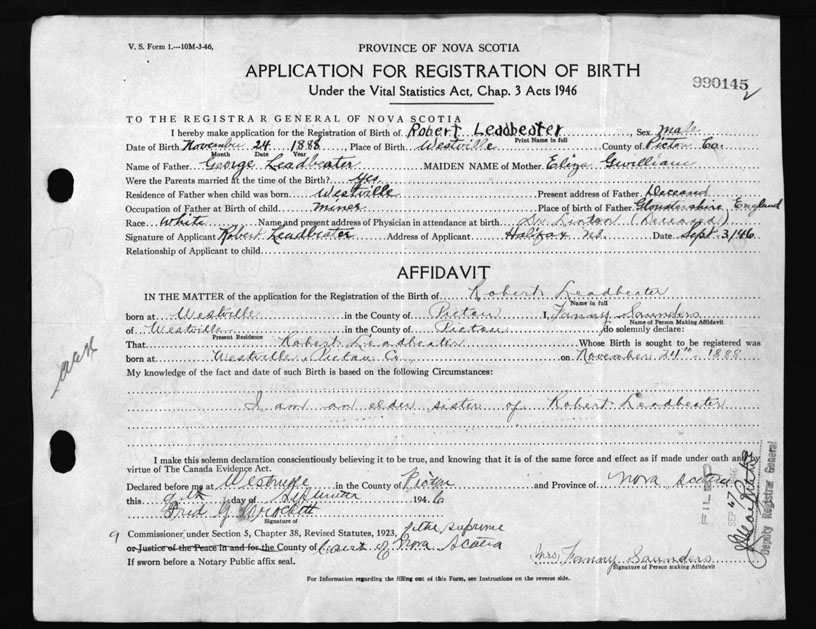 V. S. Form 1.—10M-3-46,
PROVINCE OF NOVA SCOTIA
APPLICATION FOR REGISTRATION OF BIRTH
990145
Under the Vital Statistics Act, Chap. 3 Acts 1946
TO THE REGISTRAR GENERAL OF NOVA SCOTIA
I hereby make application for the Registration of Birth of Robert Leadbeater Sex male
Print Name in full
Date of Birth November 24 1888, Place of Birth Westville County of Pictou Co.
Month Date Year
Name of Father George Leadbeater MAIDEN NAME of Mother Eliza Gwilliam
Were the Parents married at the time of the Birth? Yes
Residence of Father when child was born Westville Present address of Father Deceased
Occupation of Father at Birth of child miner Place of birth of Father Gloustershire, England
Race White Name and present address of Physician in attendance at birth Dr. (Deceased)
Signature of Applicant Robert Leadbeater Address of Applicant Halifax NS. Date Sept. 3/46
Relationship of Applicant to child
AFFIDAVIT
IN THE MATTER of the application for the Registration of the Birth of Robert Leadbeater
Name in full
born at Westville in the County of Pictou I, Fanny Saunders
Name of Person Making Affidavit
of Westville in the County of Pictou do solemnly declare:
Present Residence
That Robert Leadbeater Whose Birth is sought to be registered was
born at Westville Pictou Co. on November 24" 1888
My knowledge of the fact and date of such Birth is based on the following Circumstances:
I am an elder sister of Robert Leadbeater
I make this solemn declaration conscientiously believing it to be true, and knowing that it is of the same force and effect as if made under oath and by
virtue of The Canada Evidence Act.
Declared before me at Westville in the County of Pictou and Province of Nova Scotia
this day of September 1946
Fred G
Signature of
a Commissioner under Section 5, Chapter 38, Revised Statutes, 1923, of the Supreme
or Justice of the Peace in and for the County of Court of Nova Scotia
If sworn before a Notary Public affix seal.
Mrs. Fanny Saunders
Signature of Person making Affidavit
For Information regarding the filling out of this Form, see Instructions on the reverse side.
FILED
SEP
Deputy Registrar General